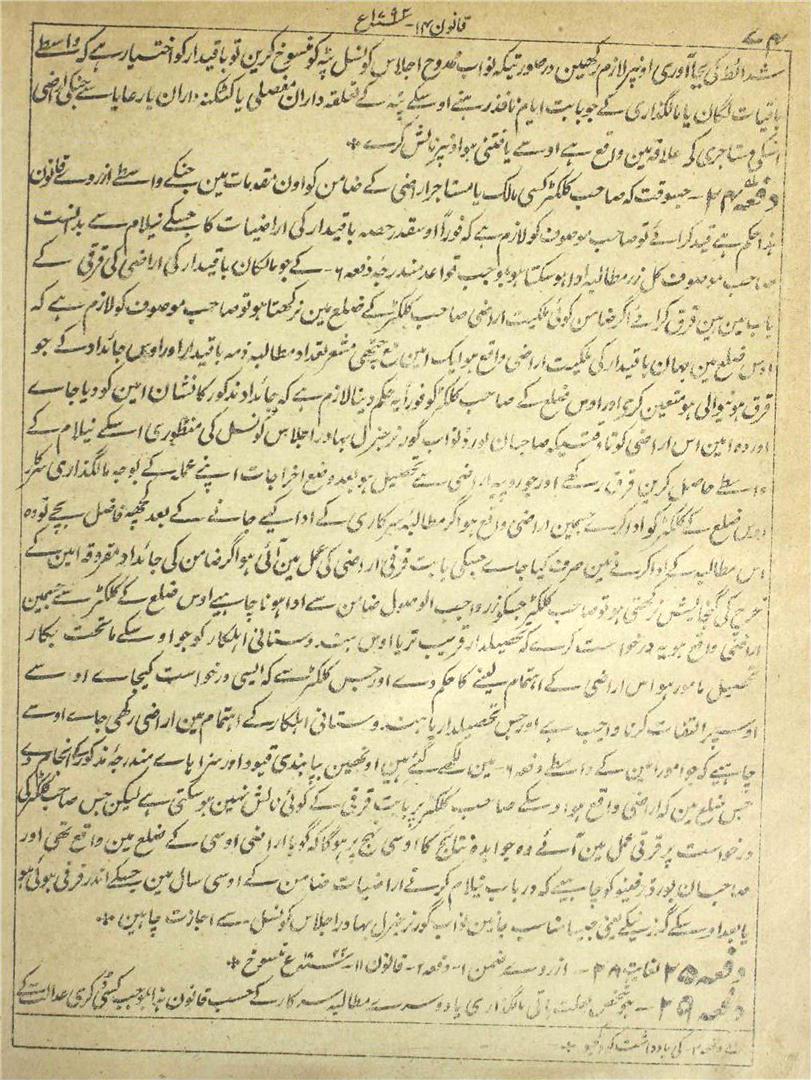 قانون ۱۴ ۱۷۹۳ع
شرائط کی بجا آوری اونپر لازم رکھین درصورتیکہ نواب ممدوح اجلاس کونسل پٹہ کو منسوخ کرین تو باقیدار کو اختیار ہے کہ واسطے
باقیات لگان یا مالگذاری کے جو بابت ایام نافذ رہنے اوسکے پٹہ کے تعلقہ داران مفصلی یا کٹکنہ داران یا رعایا سے جنکی اراضی
اسکی مستاجری کے علاقہ مین واقع ہے اوسے یافتنی ہو اونپر نالش کرے
دفعہ ۲۴ - جسوقت کہ صاحب کلکٹر کسی مالک یا مستاجر اراضی کے ضامن کو اون مقدمات مین جنکے واسطے ازروے قانون
ہذا حکم ہے قید کرائے تو صاحب موصوف کو لازم ہے کہ فوراً اوسقدر حصہ باقیدار کی اراضیات کا جسکے نیلام سے بدانست
صاحب موصوف کل زر مطالبہ ادا ہوسکتا ہو بموجب قواعد مندرجہ دفعہ ۶ - کے جو مالکان باقیدار کی اراضی کی قرقی کے
باب مین ہین قرق کرائے اگر ضامن کوئی ملکیت اراضی صاحب کلکٹر کے ضلع مین نرکھتا ہو تو صاحب موصوف کو لازم ہے کہ
اوس ضلع مین جہان باقیدار کی ملکیت اراضی واقع ہو ایک امین مع چٹھی مشعر تعداد مطالبہ ذمہ باقیدار اور اوس جائداد کے جو
قرق ہونیوالی ہو متعین کرے اور اوس ضلع کے صاحب کلکٹر کو فوراً یہ حکم دینا لازم ہے کہ جائداد مذکور کا نشان امین کو دیا جاے
اور وہ امین اس اراضی کو تاوقتیکہ صاحبان بورڈ نواب گورنر جنرل بہادر اجلاس کونسل کی منظوری اسکے نیلام کے
واسطے حاصل کرین قرق رکھے اور جو روپیہ اراضی سے تحصیل ہو بعد وضع اخراجات اپنے عملہ کے بوجہ مالگذاری سرکار
اوس ضلع کے کلکٹر کو ادا کرے جسمین اراضی واقع ہو اگر مطالبہ سرکاری کے ادا کیے جانے کے بعد کچھ فاضل بچے تو وہ
اس مطالبہ کے ادا کرنے مین صرف کیا جاے جسکی بابت قرقی اراضی کی عمل مین آئی ہو اگر ضامن کی جائداد مقروقہ امین کے
خرچ کی گنجایش نرکھتی ہو تو صاحب کلکٹر جسکو زر واجب الوصول ضامن سے ادا ہونا چاہیے اوس ضلع کے کلکٹر سے جسمین
اراضی واقع ہو یہ درخواست کرے کہ تحصیلدار قریب تر یا اوس ہندوستانی اہلکار کو جو اوسکے ماتحت بکار
تحصیل مامور ہو اس اراضی کے اہتمام لینے کا حکم دے اور جس کلکٹر سے کہ ایسی درخواست کیجاے اوسے
اوسپر التفات کرنا واجب ہے اور جس تحصیلدار یا ہندوستانی اہلکار کے اہتمام مین اراضی رکھی جاے اوسے
چاہیے کہ جو امور امین کے واسطے دفعہ ۶ - مین لکھے گئے ہین اونھین بپابندی قیود اور سزاہاے مندرجہ مذکور کے انجام دے
جس ضلع مین کہ اراضی واقع ہو اوسکے صاحب کلکٹر پر بابت قرقی کے کوئی نالش نہین ہوسکتی ہے لیکن جس صاحب کلکٹر کی
درخواست پر قرقی عمل مین آئے وہ جوابدہ نتائج کا اوسی نہج پر ہوگا کہ گویا اراضی اوسی کے ضلع مین واقع تھی اور
صاحبان بورڈ رفینو کو چاہیے کہ درباب نیلام کرنے اراضیات ضامن کے اوسی سال مین جسکے اندر قرقی ہوئی ہو
یا بعد اوسکے گذرنیکے یعنی جیسا مناسب جانین نواب گورنر جنرل بہادر اجلاس کونسل سے اجازت چاہین
دفعہ ۲۵ لغایت ۲۸ - ازروے ضمن ۱ - دفعہ ۲ - قانون ۱۱ - ۱۸۲۲ع منسوخ
دفعہ ۲۹ - جو شخص بعلت باقی مالگذاری یا دوسرے مطالبہ سرکار کے حسب قانون ہذا یا بموجب کسی ڈگری عدالت کے
دفعہ ۲ - کی یادداشت دیکھو